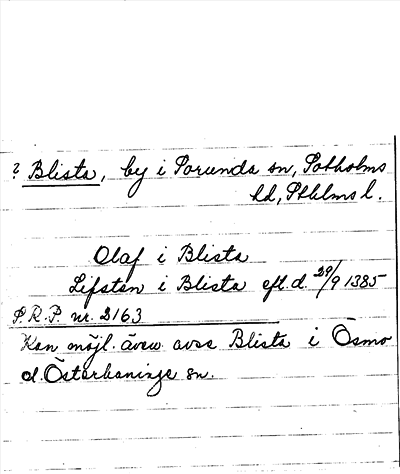 ? Blista, by i Sorunda sn, Sotholms
hd, Sthlms l.
Olaf i Blista
Lifsten i Blista eft. d. 29/9 1385
S.R.P. nr. 2163
Kan möjl. även avse Blista i Ösmo
el. Österhaninge sn.